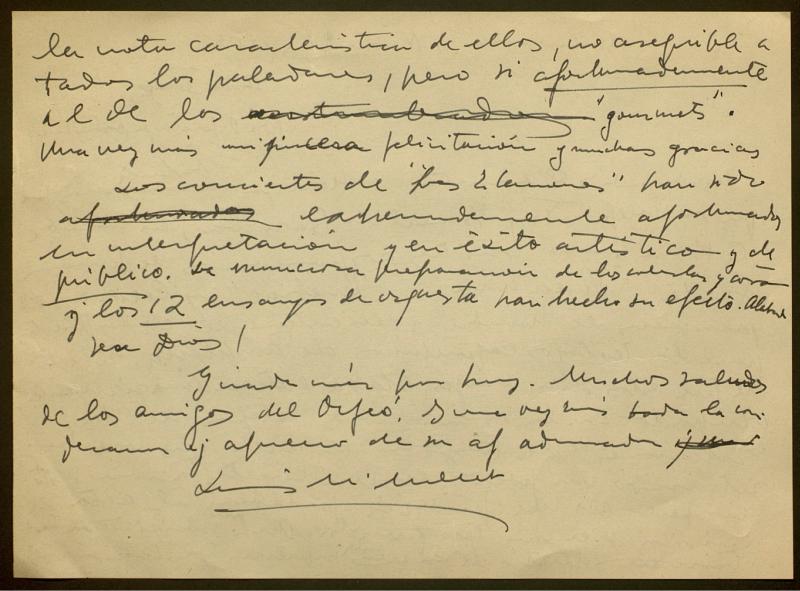 la nota característica de ellos, no asequible a
todos los paladares, pero si afortunadamente
al de los "gourmets".
Una vez más mi felicitación y muchas gracias
Los conciertos de "Las Estaciones" han sido
afortunados extremadamente afortunados
en interpretación y en éxito artístico y de
público. La minuciosa preparación de los y coro
y los 12 ensayos de orquesta han hecho su efecto. Alabado
sea Dios!
Y nada más por hoy. Muchos saludos
de los amigos del Orfeó, y una vez más toda la con
sideración y aprecio de su af admirador
Luis Mª Millet